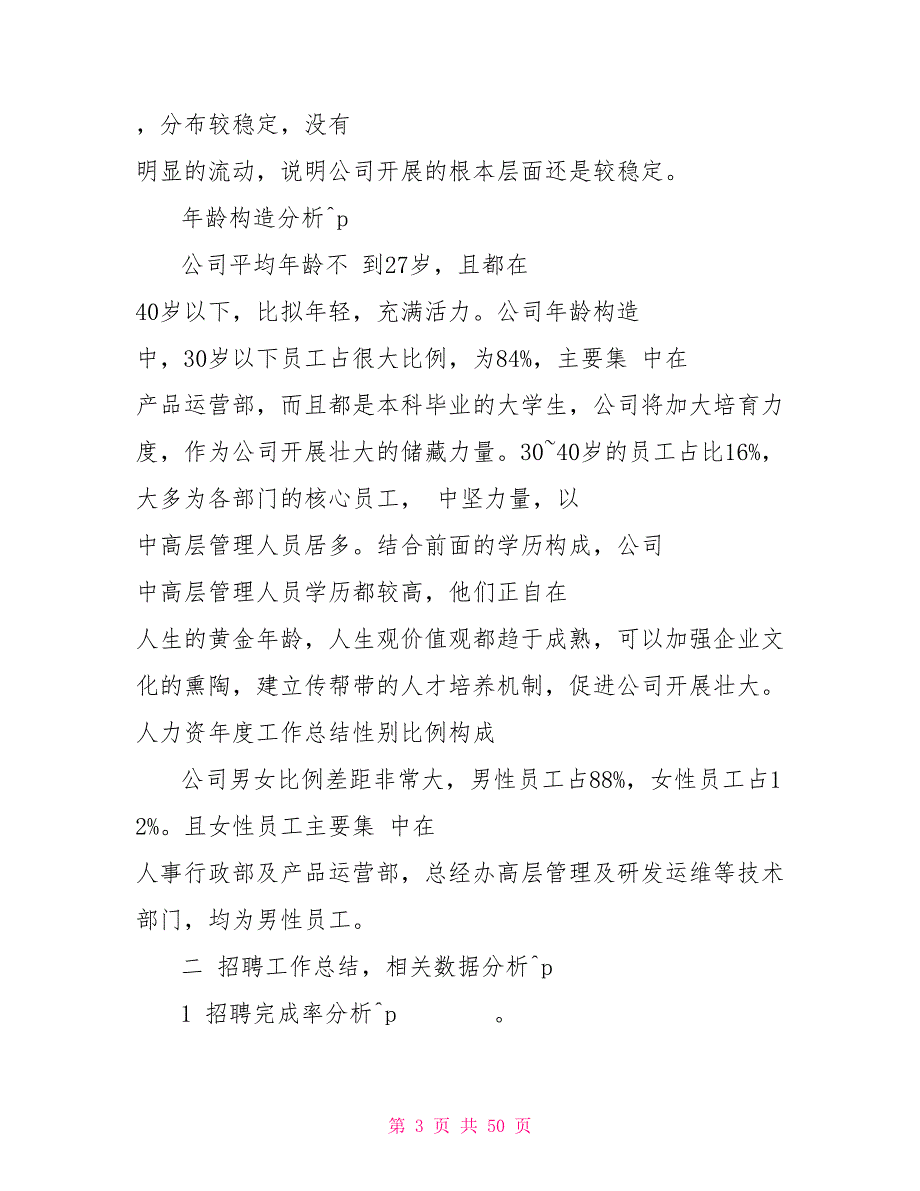 ，分布较稳定，没有
明显的流动，说明公司开展的根本层面还是较稳定。
年龄构造分析^p
公司平均年龄不 到27岁，且都在
40岁以下，比拟年轻，充满活力。公司年龄构造
中，30岁以下员工占很大比例，为84%，主要集 中在
产品运营部，而且都是本科毕业的大学生，公司将加大培育力
度，作为公司开展壮大的储藏力量。30~40岁的员工占比16%，
大多为各部门的核心员工， 中坚力量，以
中高层管理人员居多。结合前面的学历构成，公司
中高层管理人员学历都较高，他们正自在
人生的黄金年龄，人生观价值观都趋于成熟，可以加强企业文
化的熏陶，建立传帮带的人才培养机制，促进公司开展壮大。
人力资年度工作总结性别比例构成
公司男女比例差距非常大，男性员工占88%，女性员工占1
2%。且女性员工主要集 中在
人事行政部及产品运营部，总经办高层管理及研发运维等技术
部门，均为男性员工。
二 招聘工作总结，相关数据分析^p
1 招聘完成率分析^p 。
第 3 页 共 50 页